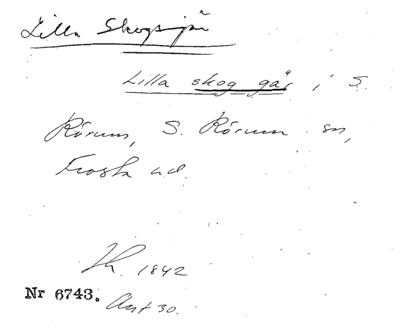 Lilla Skogsjö
Lilla skog går i S.
Rörum, S. Rörum sn,
Frosta hd.
1842
Nr 6743. Ant 30.